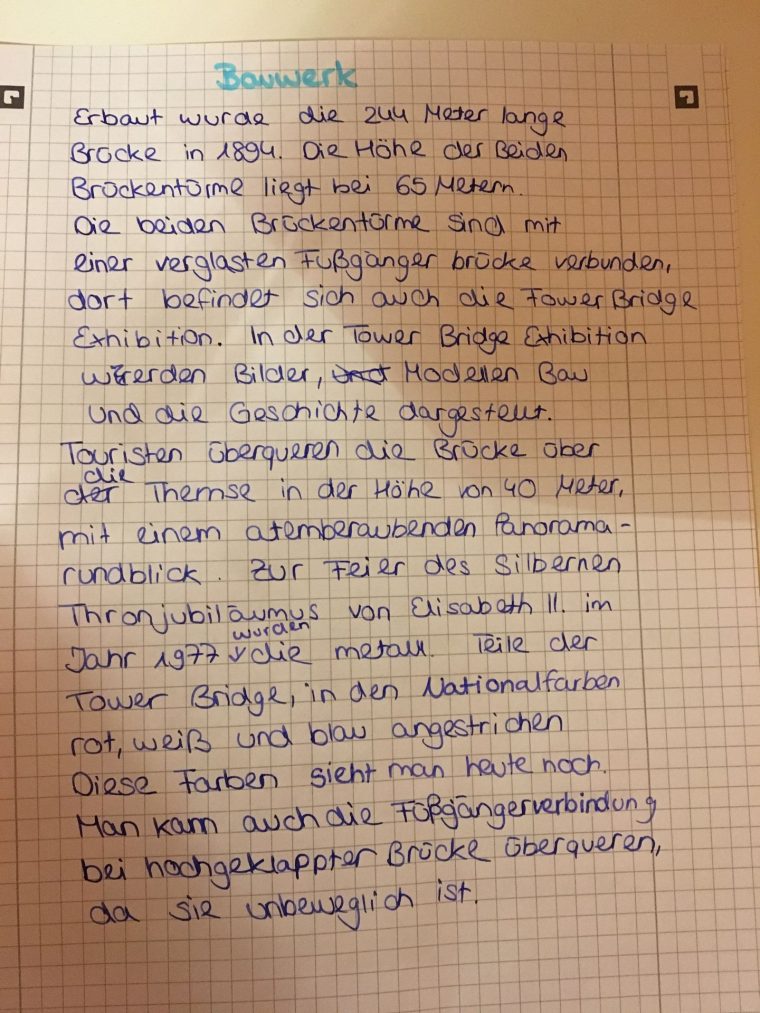 Bauwerk
Erbaut wurde die 244 Meter lange
Brücke in 1894. Die Höhe der Beiden
Brückentürme liegt bei 65 Metern.
Die beiden Brückentürme sind mit
einer verglasten Fußgänger brücke verbunden,
dort befindet sich auch die Tower Bridge
Exhibition. In der Tower Bridge Exhibition
werden Bilder, Modellen Bau
und die Geschichte dargestellt.
Touristen überqueren die Brücke über
die Themse in der Höhe von 40 Meter,
mit einem atemberaubenden Panorama-
rundblick. Zur Feier des Silbernen
Thronjubiläumus von Elisabeth II. im
Jahr 1977 wurden die metall. Teile der
Tower Bridge, in den Nationalfarben
rot, weiß und blau angestrichen
Diese Farben sieht man heute noch.
Man kann auch die Füßgängerverbindung
bei hochgeklappter Brücke überqueren,
da sie unbeweglich ist.